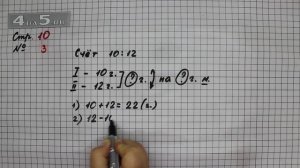 4 на 5.ru
Стр. 10
№ 3
Счёт 10:12
I – 10 г.
II – 12 г.
? г. на ? г. м.
1) 10 + 12 = 22 (г.)
2) 12 - 1